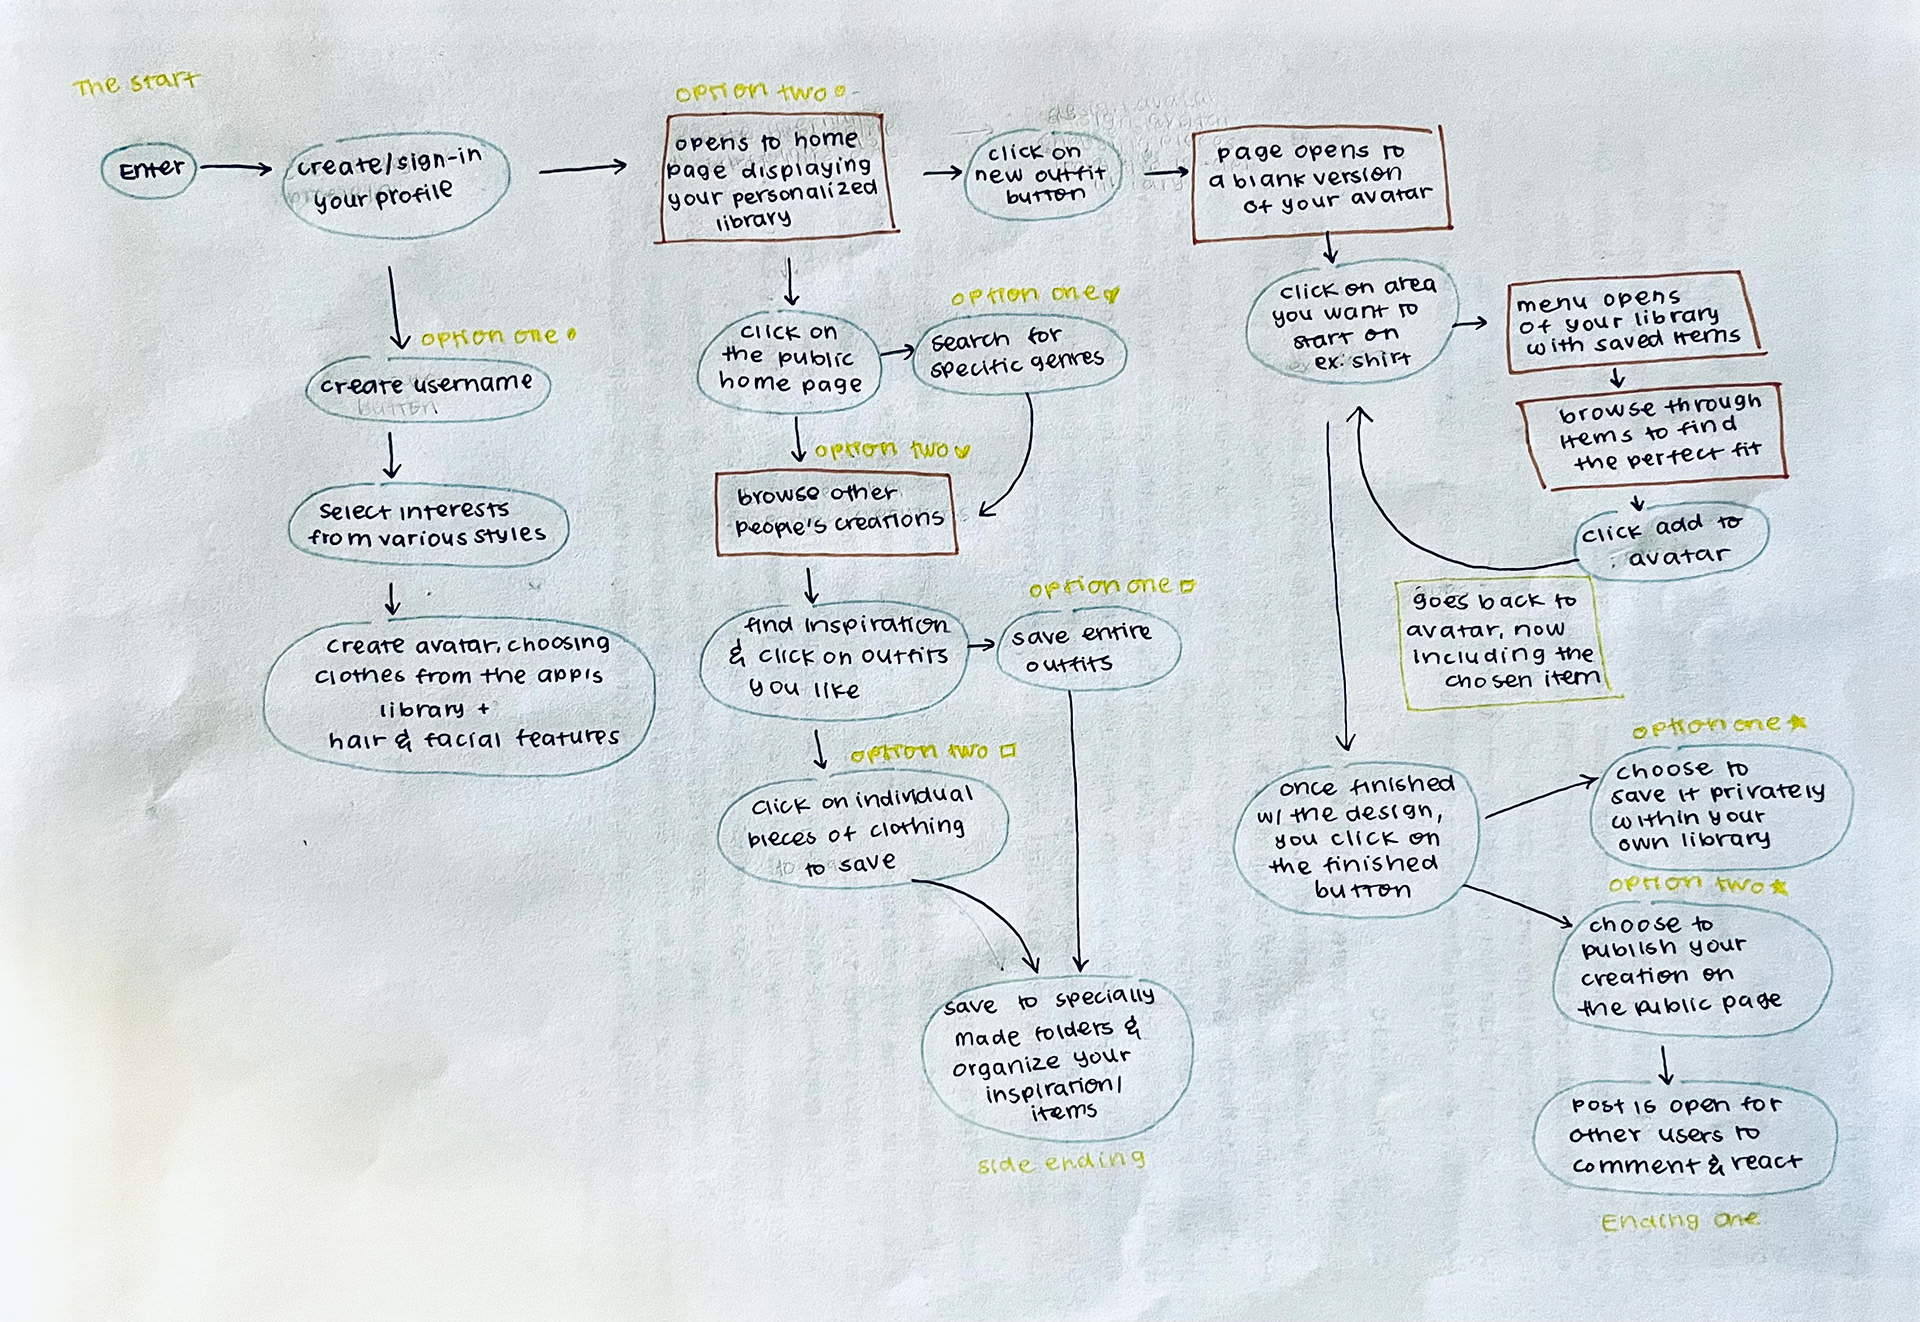 The start
Enter
create/sign-in
your profile
option one
create username
button
select interests
from various styles
create avatar, choosing
clothes from the app's
library +
hair & facial features
option two
opens to home
page displaying
your personalized
library
click on
the public
home page
option one
search for
specific genres
option two
browse other
people's creations
find inspiration
& click on outfits
you like
option one
save entire
outfits
option two
click on individual
pieces of clothing
to save
save to specially
made folders &
organize your
inspiration/
items
side ending
click on
new outfit
button
page opens to
a blank version
of your avatar
click on area
you want to
start on
ex: shirt
menu opens
of your library
with saved items
browse through
items to find
the perfect fit
click add to
avatar
goes back to
avatar, now
including the
chosen item
once finished
w/ the design,
you click on
the finished
button
option one
choose to
save it privately
within your
own library
option two
choose to
publish your
creation on
the public page
post is open for
other users to
comment & react
Ending one